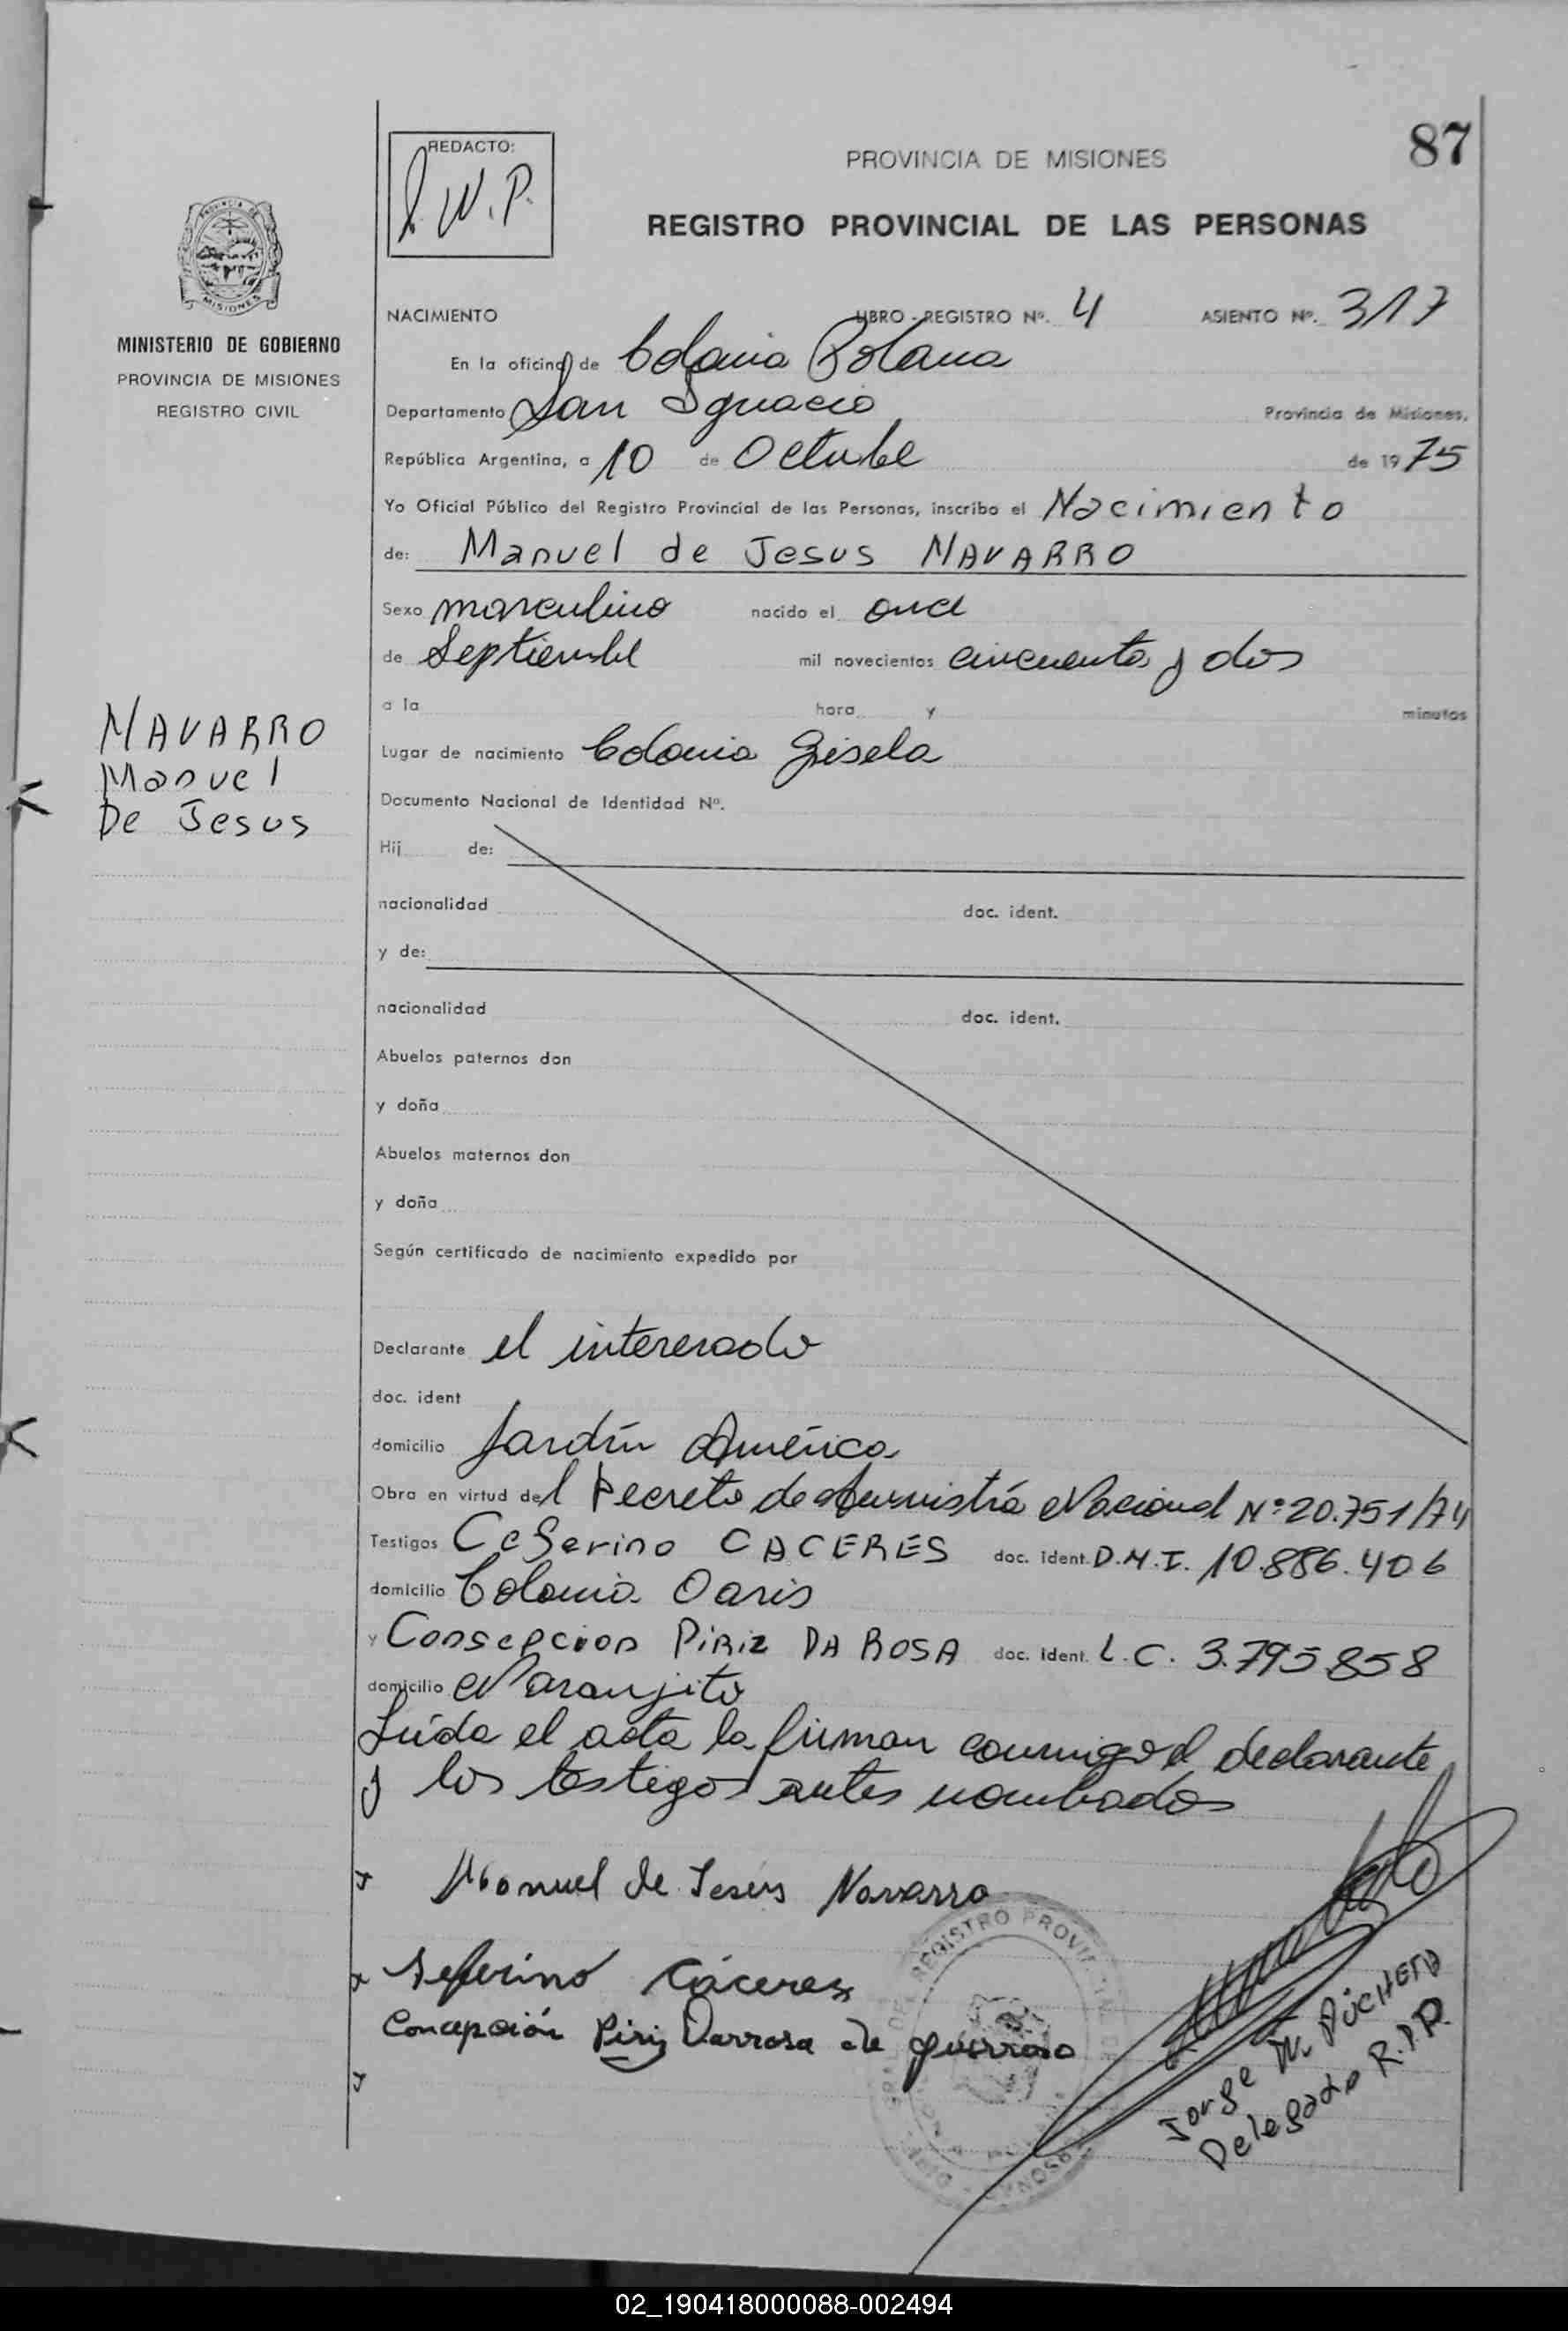 87
REDACTO:
J.W.P.
PROVINCIA DE MISIONES
REGISTRO PROVINCIAL DE LAS PERSONAS
MINISTERIO DE GOBIERNO
PROVINCIA DE MISIONES
REGISTRO CIVIL
NAVARRO
Manuel
De Jesus
NACIMIENTO LIBRO - REGISTRO Nº. 4 ASIENTO Nº. 317
En la oficina de Colonia Polana
Departamento San Ignacio Provincia de Misiones,
República Argentina, a 10 de Octubre de 1975
Yo Oficial Público del Registro Provincial de las Personas, inscribo el Nacimiento
de: Manuel de Jesus NAVARRO
Sexo masculino nacido el once
de Septiembre mil novecientos cincuenta y dos
a la hora y minutos
Lugar de nacimiento Colonia Gisela
Documento Nacional de Identidad Nº.
Hij de:
nacionalidad doc. ident.
y de:
nacionalidad doc. ident.
Abuelos paternos don
y doña
Abuelos maternos don
y doña
Según certificado de nacimiento expedido por
Declarante el interesado
doc. ident
domicilio Jardín América
Obra en virtud del Decreto de Amnistía Nacional Nº 20.751/74
Testigos Ceferino CACERES doc. ident. D.N.I. 10.886.406
domicilio Colonia Oasis
y Consepcion PiRiz DA ROSA doc. ident. L.C. 3.795.858
domicilio Naranjito
Leída el acta la firman conmigo el declarante
y los testigos antes nombrados
Manuel de Jesús Navarro
Seferino Cáceres
Concepción Piriz Darrosa de guerrero
REGISTRO PROVINCIAL DE
Jorge W.
Delegado R.P.P.
02_190418000088-002494